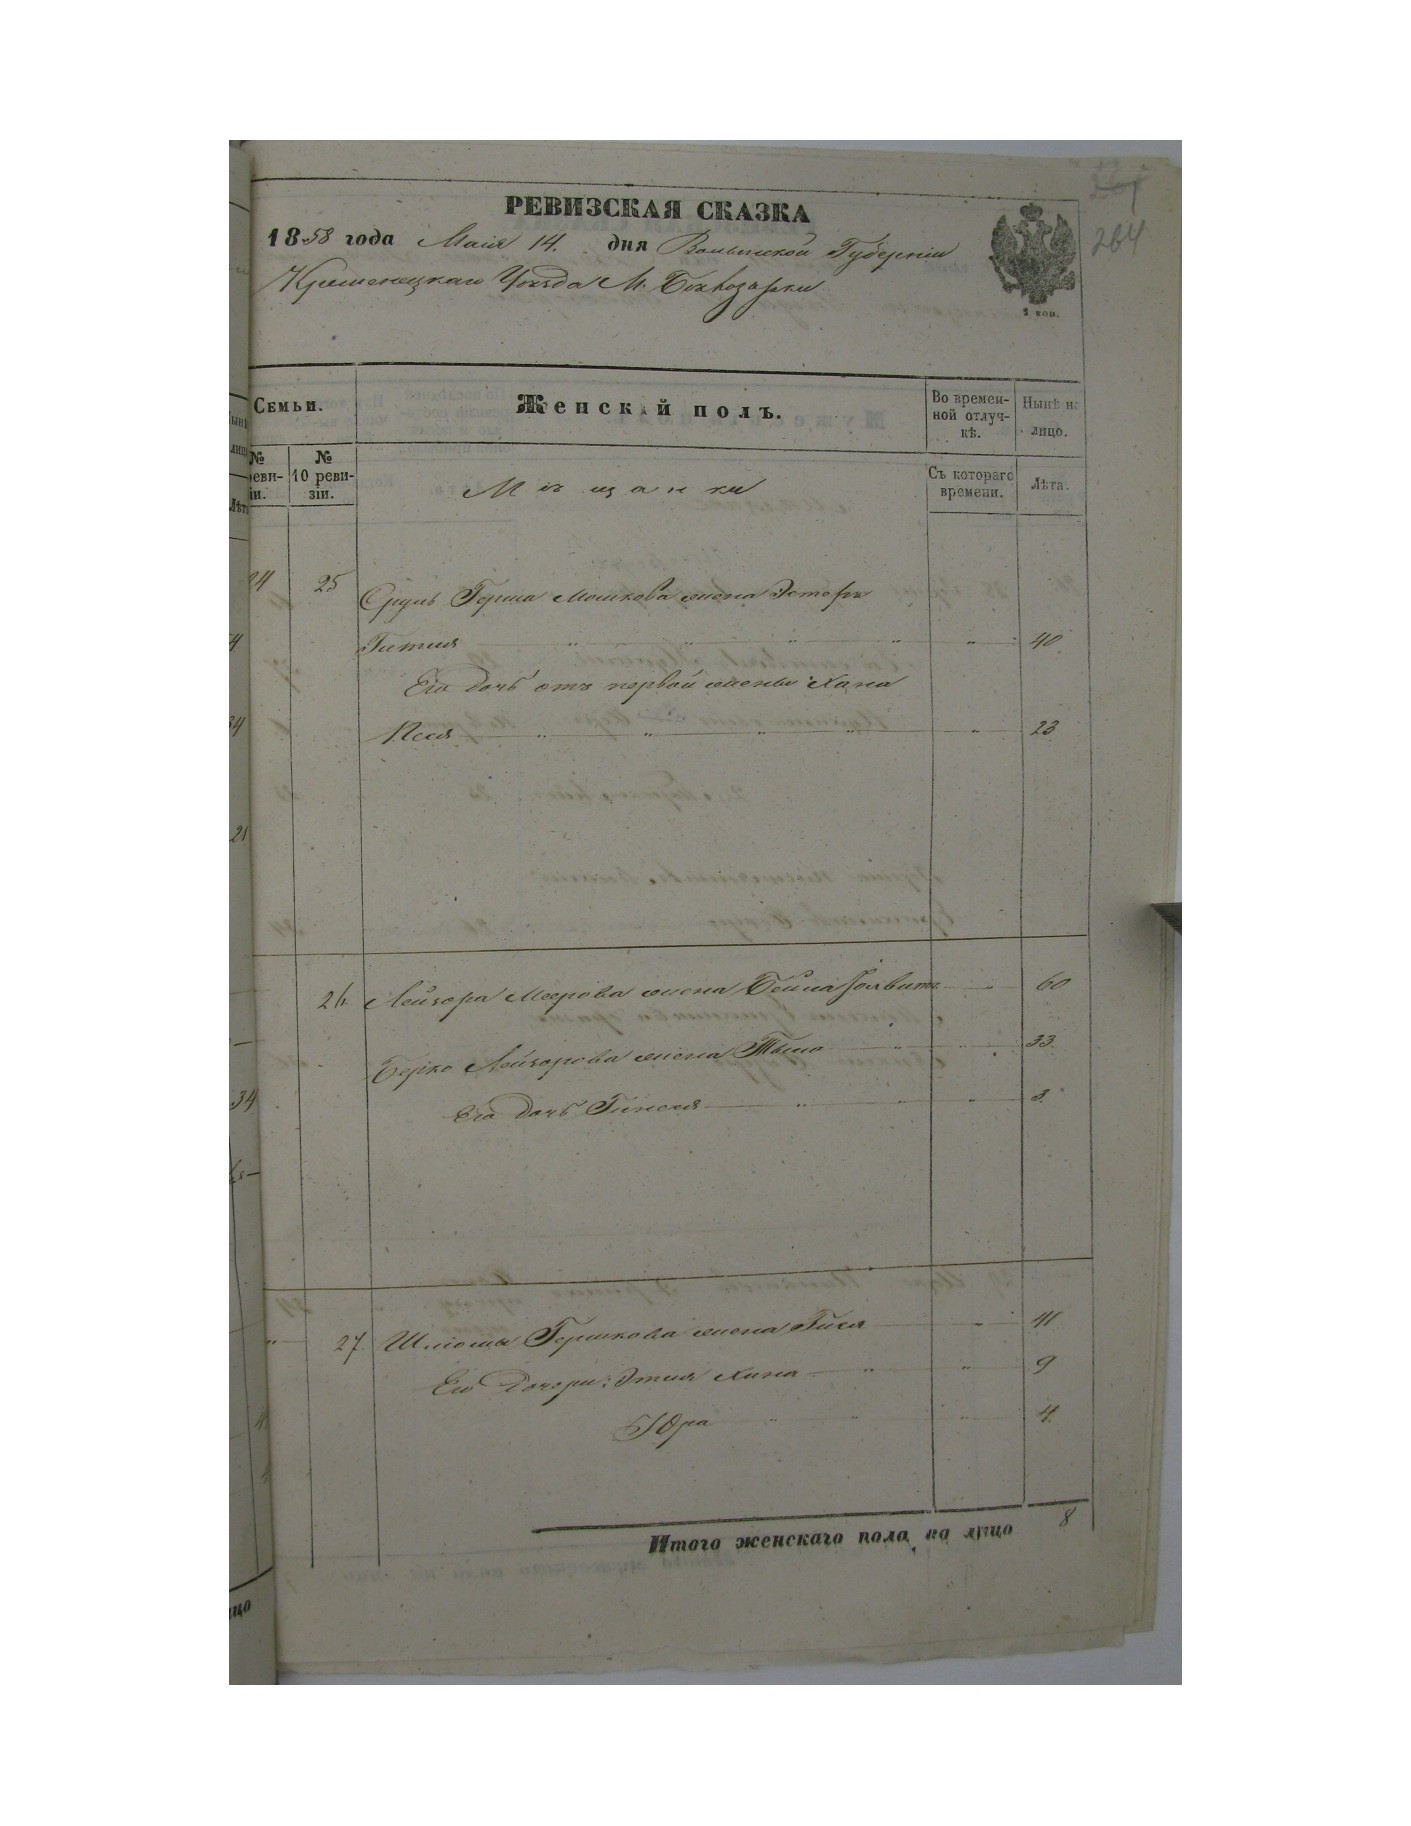 264
РЕВИЗСКАЯ СКАЗКА
1858 года Маія 14. дня Волынской Губерніи
Кременецкаго Уѣзда М. Бѣлозорки
1 коп.
Семьи.
Женскій полъ.
Во времен-
ной отлуч-
кѣ.
Нынѣ на
лицо.
№
реви-
зіи.
№
10 реви-
зіи.
Мѣщанки
Съ котораго
времени.
Лѣта.
24 25 Сруль Герша Мошкова жена Эстеръ
Гитля 40
Его дочь отъ первой жены Хана
Песя 23
26 Лейзора Меерова жена Бейла 60
Берко Лейзорова жена 33
Его дочь 3.
27. Шліомы Гершкова жена Гися 41
Его Дочери: Этля Хана 9
Юра 4.
Итого женскаго пола на лицо 8